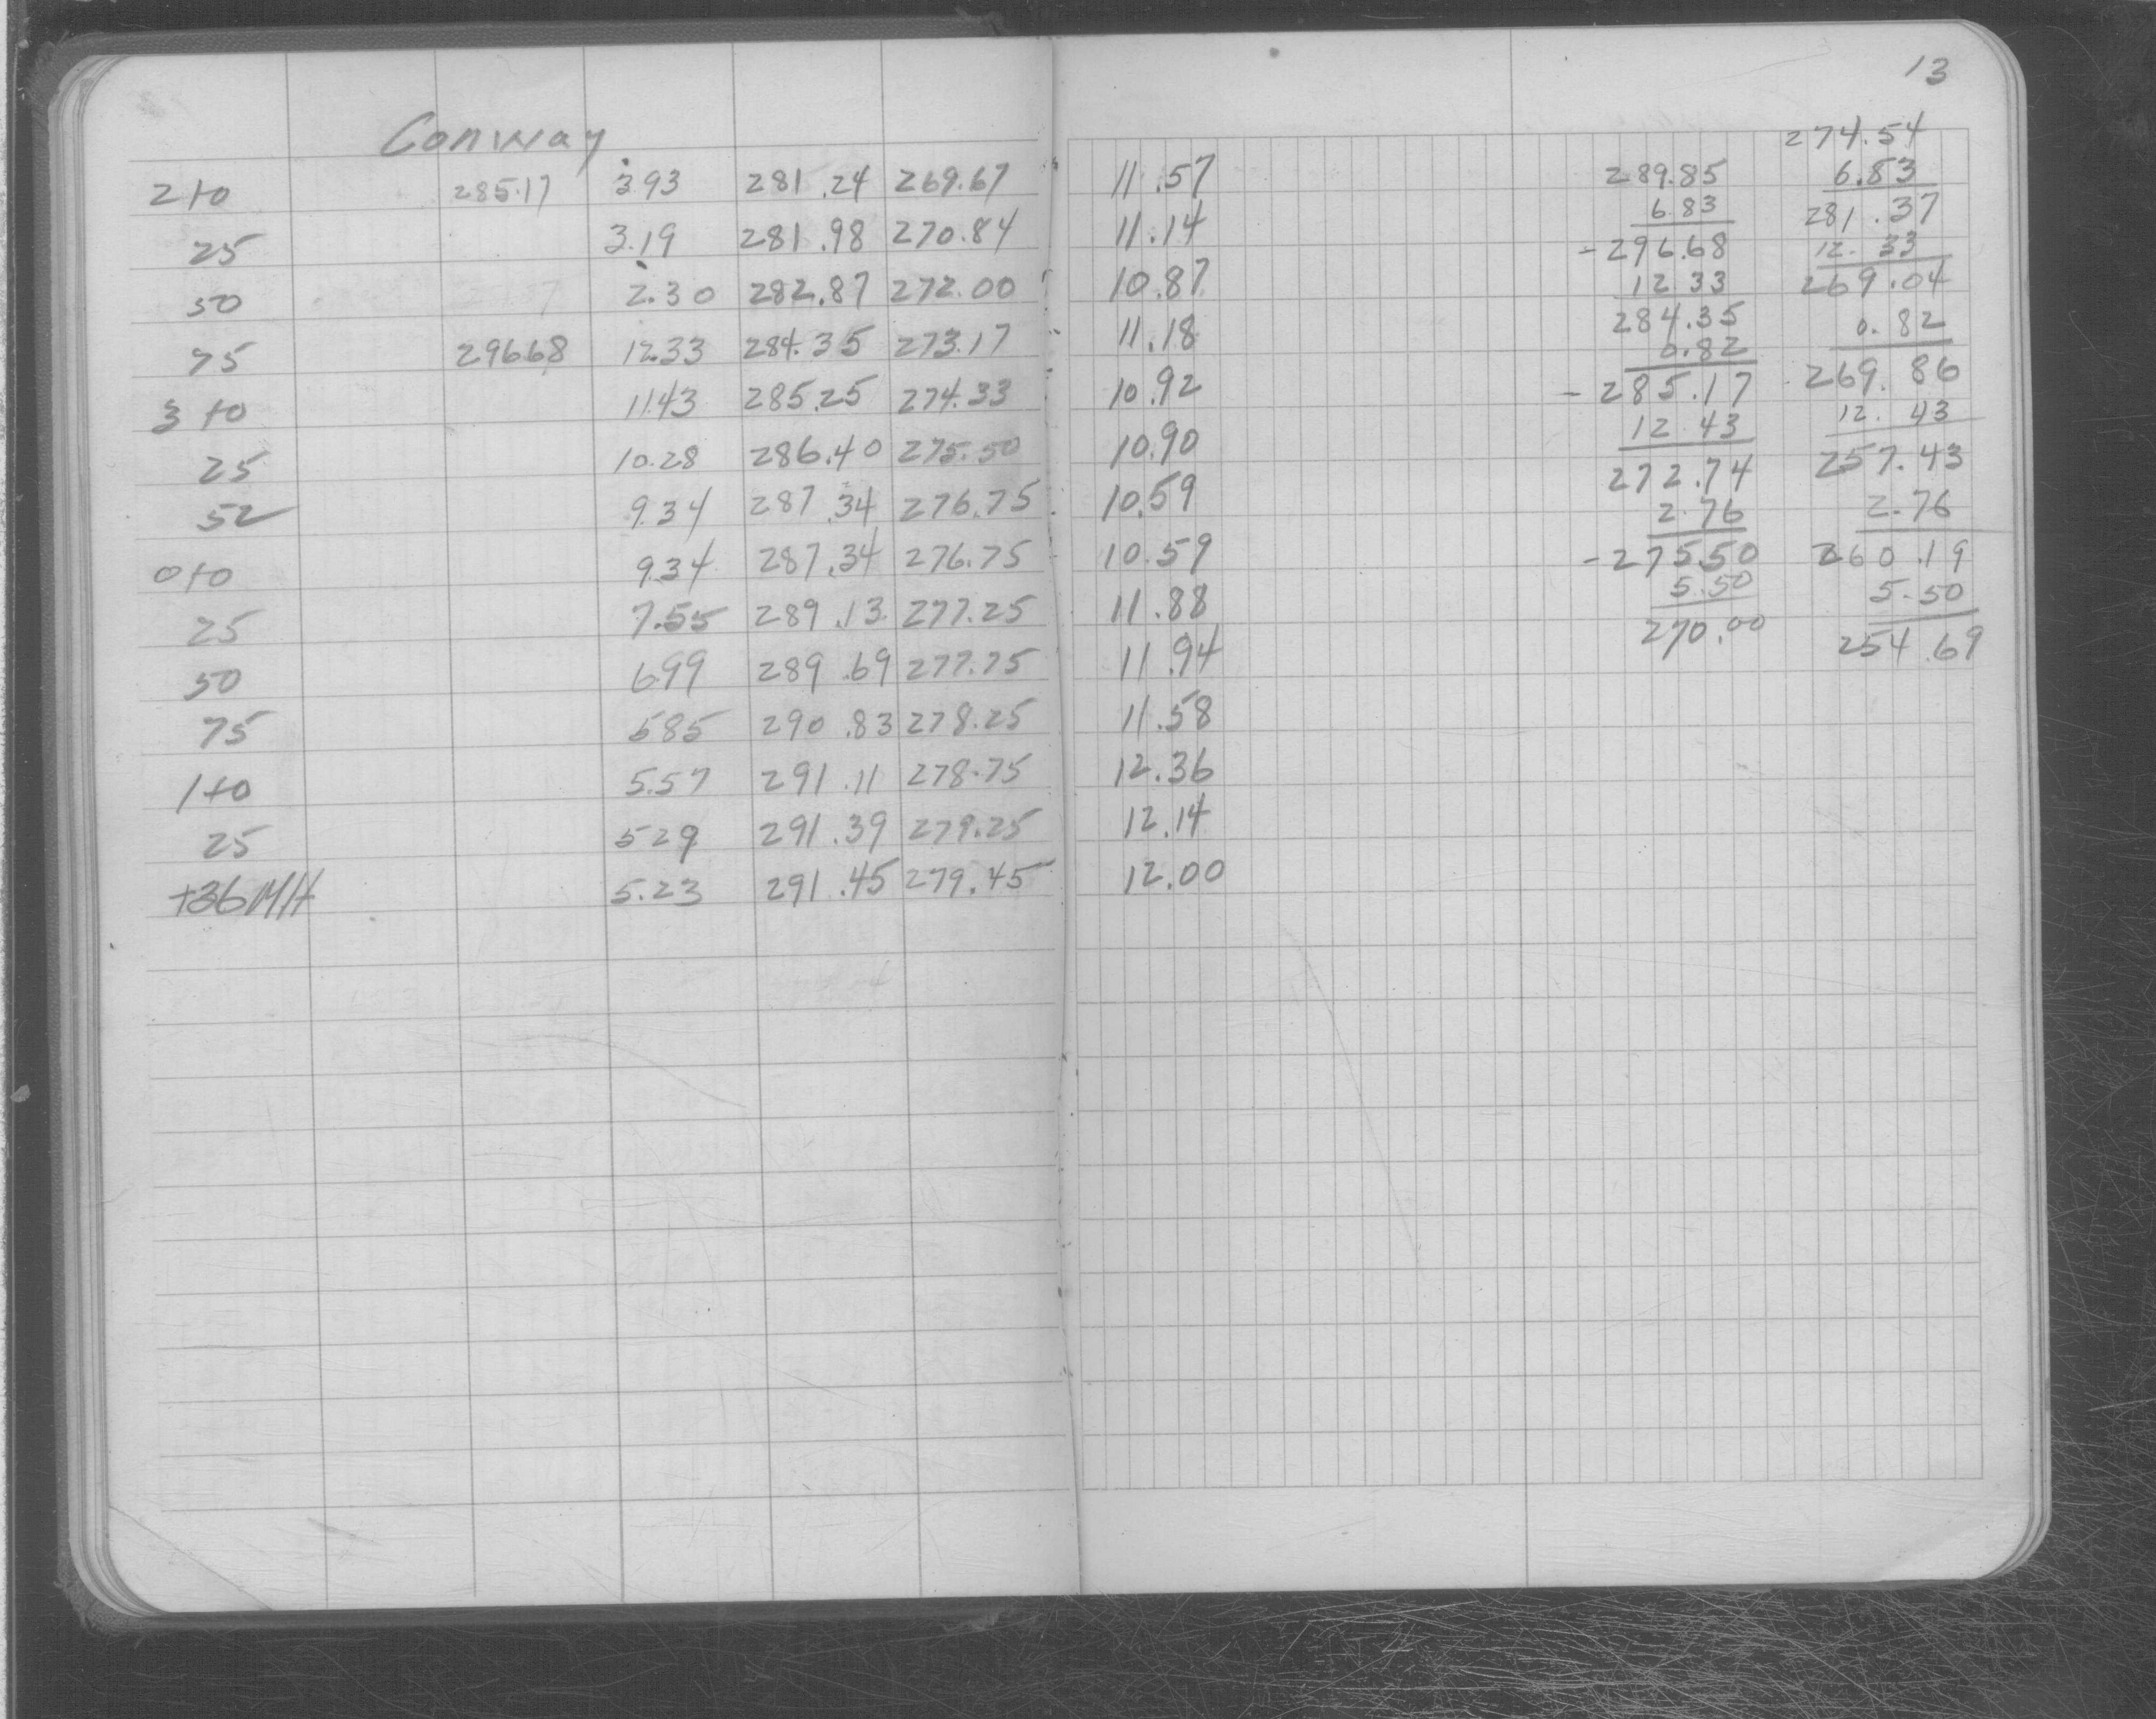 13
Conway
2+0 285.17 3.93 281.24 269.67 11.57
25 3.19 281.98 270.84 11.14
50 2.30 282.87 272.00 10.87
75 296.68 12.33 284.35 273.17 11.18
3+0 11.43 285.25 274.33 10.92
25 10.28 286.40 275.50 10.90
52 9.34 287.34 276.75 10.59
0+0 9.34 287.34 276.75 10.59
25 7.55 289.13 277.25 11.88
50 6.99 289.69 277.75 11.94
75 5.85 290.83 278.25 11.58
1+0 5.57 291.11 278.75 12.36
25 5.29 291.39 279.25 12.14
+36 MH 5.23 291.45 279.45 12.00
289.85
6.83
-296.68
12.33
284.35
0.82
-285.17
12.43
272.74
2.76
-275.50
5.50
270.00
274.54
6.83
281.37
12.33
269.04
0.82
269.86
12.43
257.43
2.76
260.19
5.50
254.69